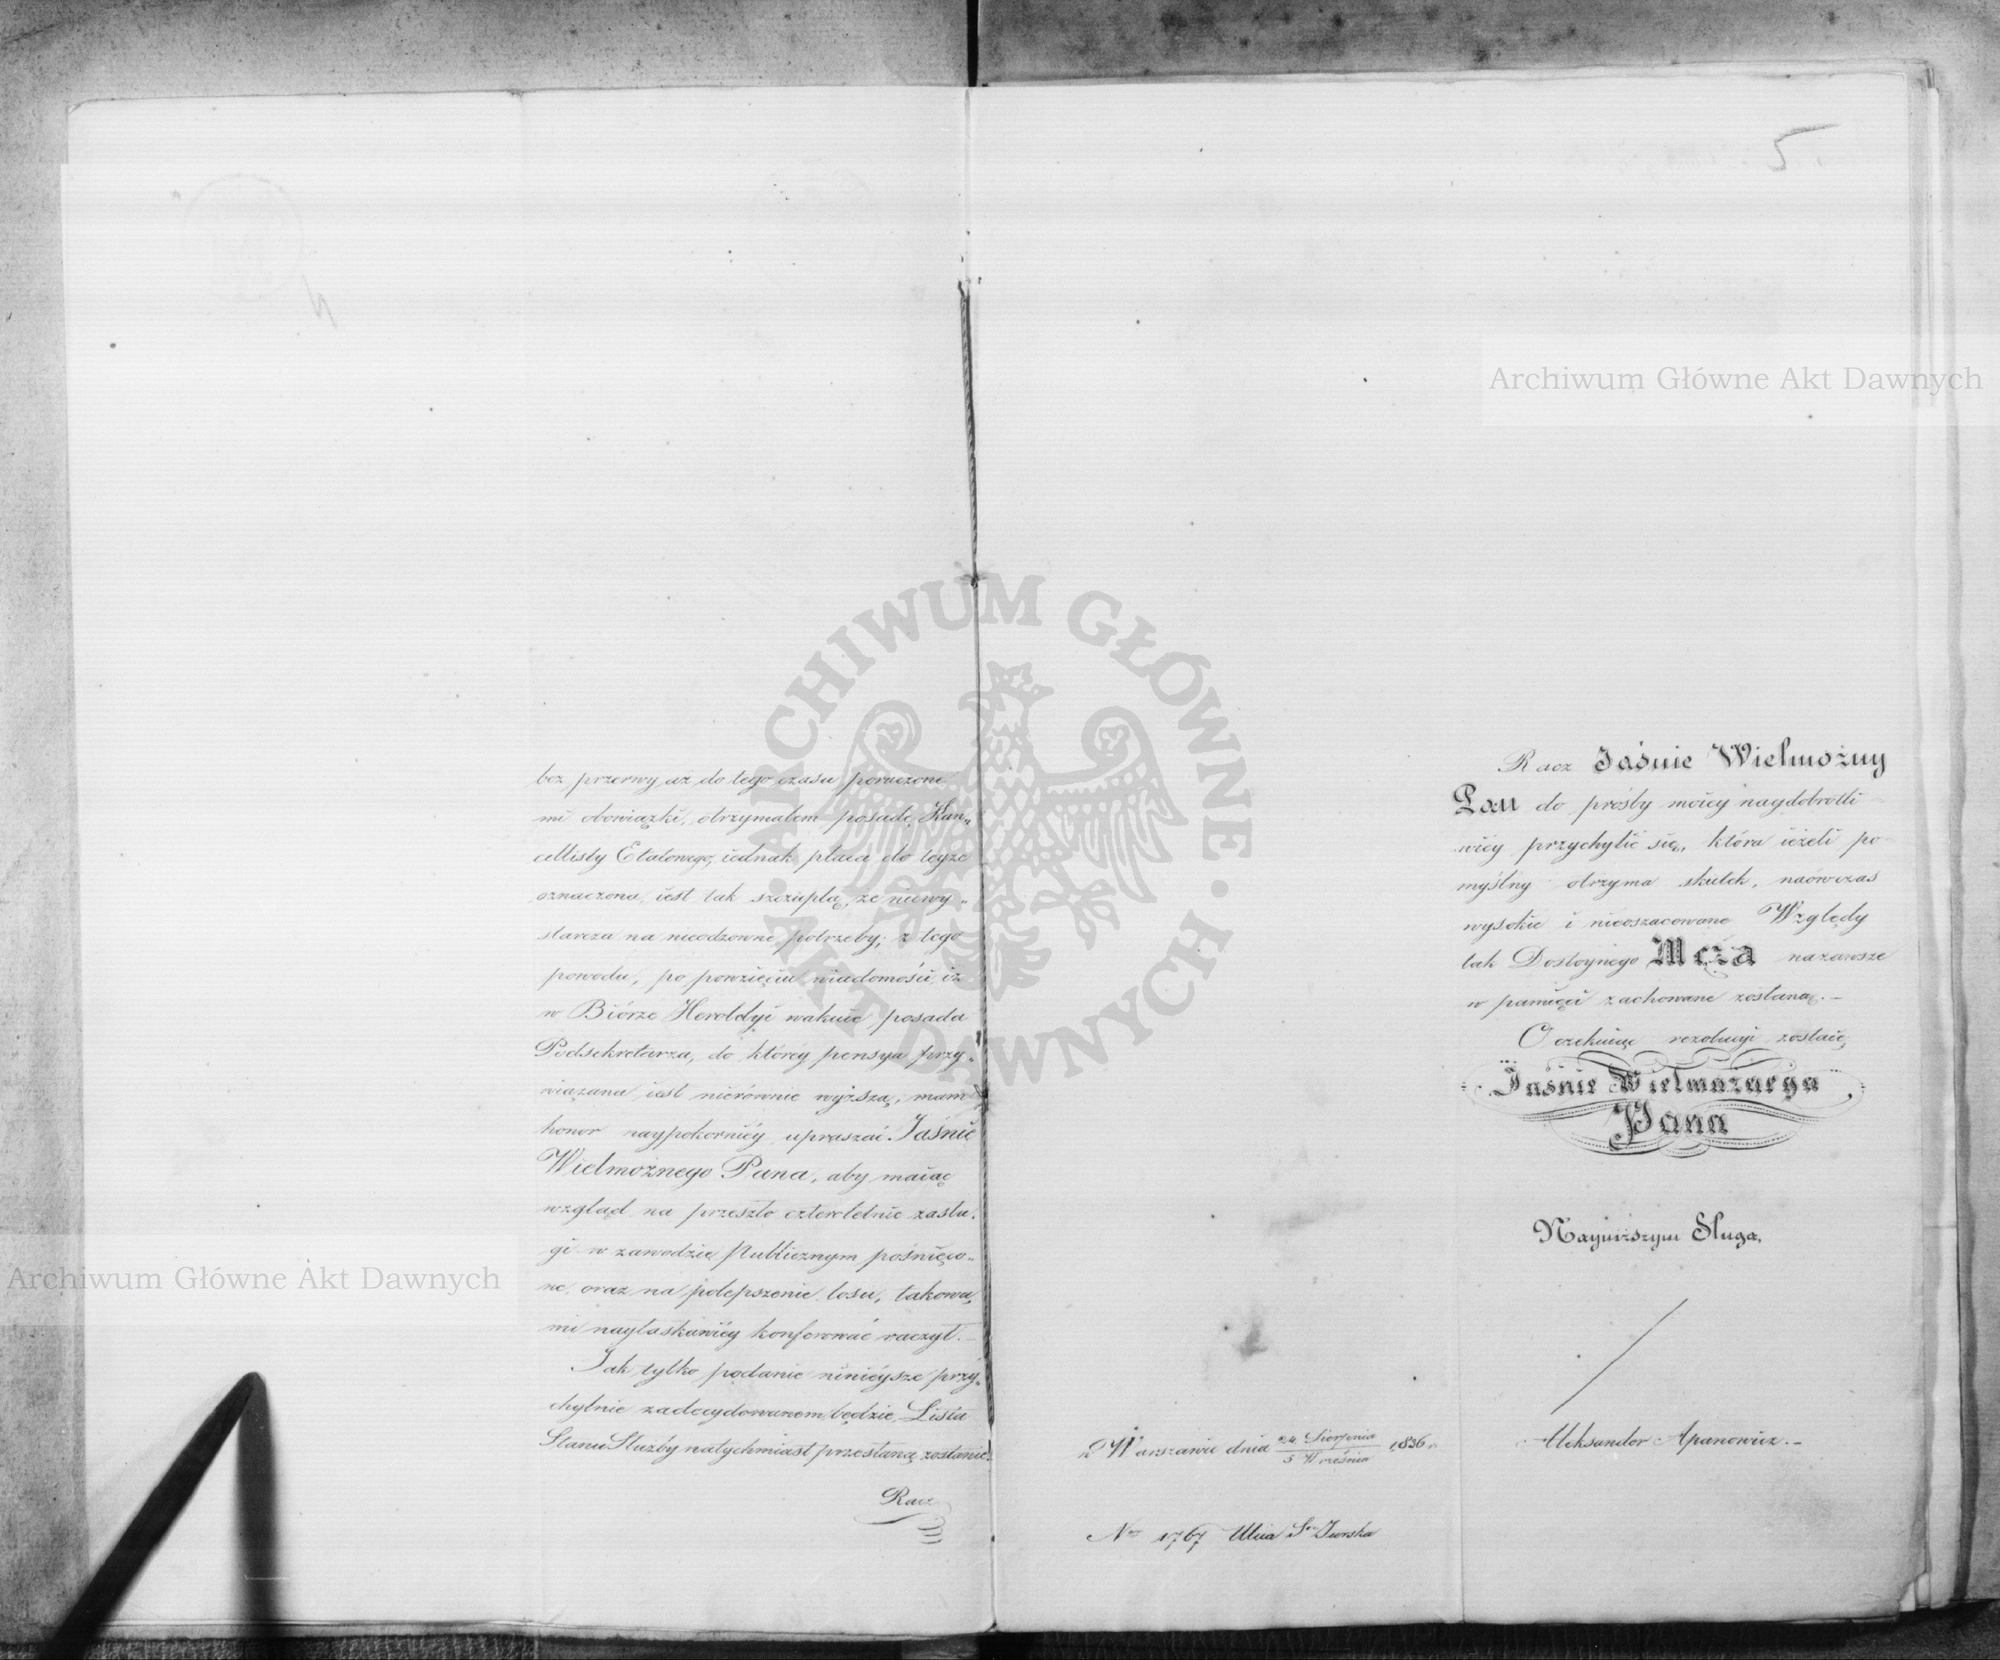 bez przerwy aż do tego czasu poruczone
mi obowiązki, otrzymałem posadę Kan„
cellisty Etatowego, iednak płaca do teyże
oznaczona iest tak szczupłą, że niewy„
starcza na nieodzowne potrzeby; z tego
powodu, po powzięciu wiadomości, iż
w Biórze Heroldyi wakuie posada
Podsekretarza, do któréy pensya przy„
wiązana iest nierównie wyższą, mam
honor naypokorniéy upraszać Jaśnie
Wielmożnego Pana, aby maiąc
wzgląd na przeszło czteroletnie zasłu„
gi w zawodzie Publicznym poświęco„
ne, oraz na polepszenie losu, takową
mi nayłaskawiéy konferować raczył.–
Jak tylko podanie ninieysze przy„
chylnie zadecydowanem będzie, Lista
Stanu Służby natychmiast przesłaną zostanie.
Racz
5
Racz Jaśnie Wielmożny
Pan do prośby moiey naydobrotli
wiéy przychylić się, która ieżeli po
myślny otrzyma skutek, naówczas
wysokie i nieoszacowane Względy
tak Dostoynego Męża nazawsze
w pamięci zachowane zostaną.–
Oczekuiąc rezolucyi zostaię
Jaśnie Wielmożnego
Pana
Nayniższym Sługą,
Aleksander Apanowicz.–
w Warszawie dnia 24 Sierpnia / 5 Września 1836 r.
Nro 1767 Ulica Sto Jerska
Archiwum Główne Akt Dawnych
Archiwum Główne Akt Dawnych
ARCHIWUM GŁÓWNE · AKT DAWNYCH ·